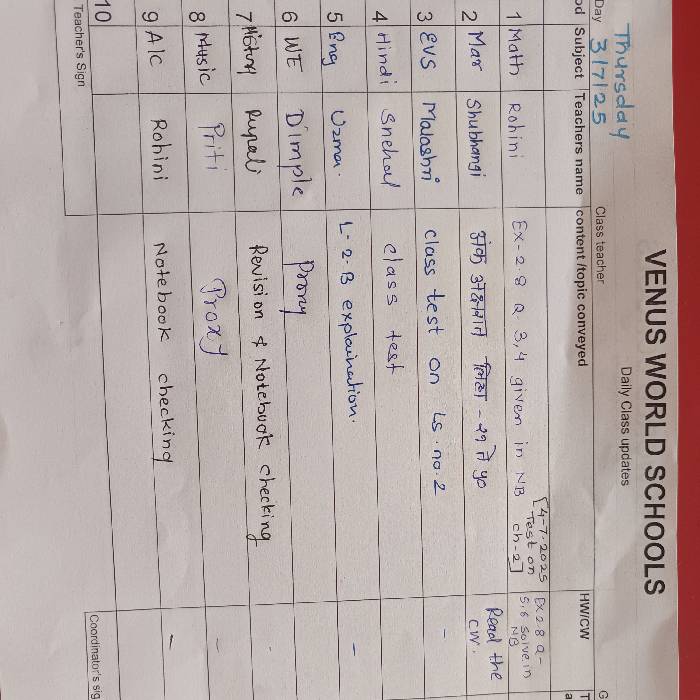 VENUS WORLD SCHOOLS
Daily Class updates
Thursday
Day 3/7/25 Class teacher
od Subject Teachers name content /topic conveyed HW/CW
1 Math Rohini Ex-2.8 Q 3,4 given in NB [4-7-2025 Test on ch-2] Ex 2.8 Q- 5,6 solve in NB
2 Mar Shubhangi अंक अक्षरात लिहा - २१ ते ५० Read the CW.
3 EVS Malashri class test on Ls. no. 2 -
4 Hindi Snehal class test
5 Eng Uzma. L-2.B explaination. -
6 WE Dimple Proxy
7 History Rupali Revision & Notebook checking -
8 Music Priti Proxy -
9 A/C Rohini Notebook checking -
10
Teacher's Sign Coordinator's sig